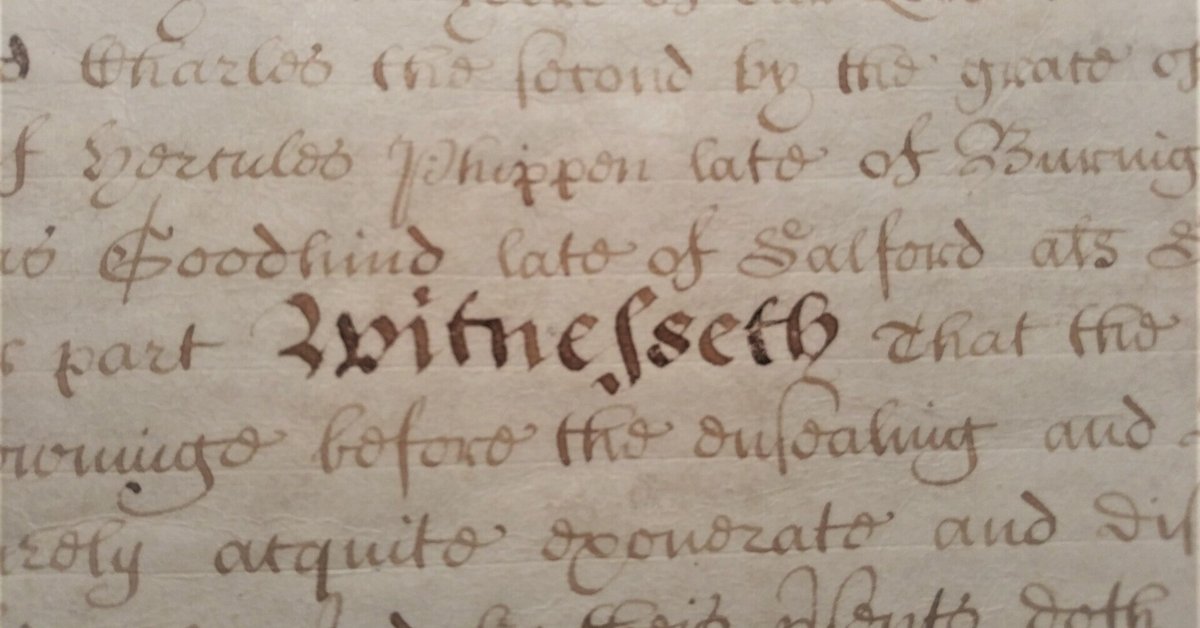 Charles the second by the grace of
f Hercules Phippen late of Burnig
as Goodhind late of Salford als S
s part Witnesseth That the
owninge before the ensealing and
rely acquite exonerate and dis
theis presents doth